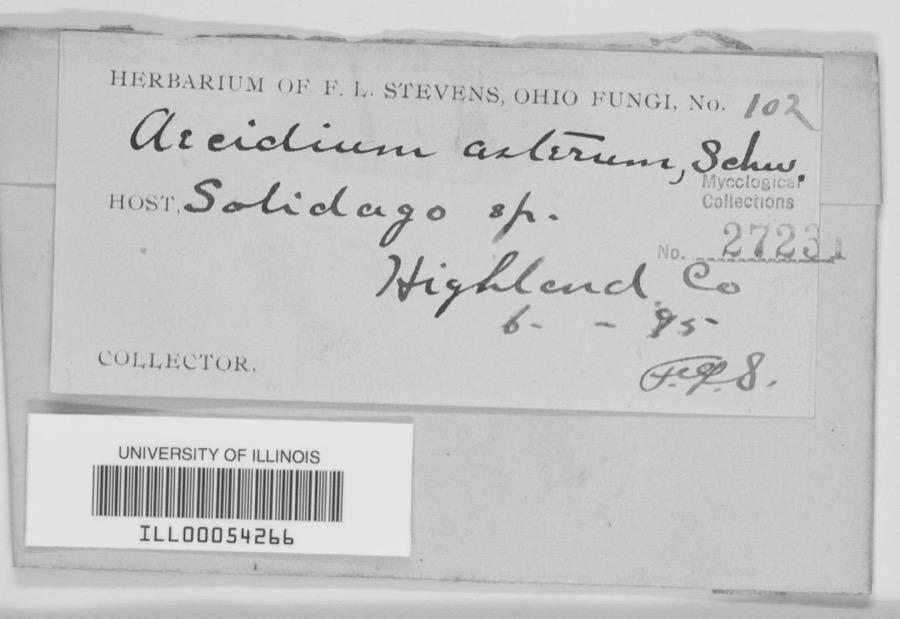 HERBARIUM OF F. L. STEVENS, OHIO FUNGI, No. 102
Aecidium asterum, Schw.
Mycological
Collections
HOST, Solidago sp.
No. 27231
Highland Co
6- - 95
COLLECTOR. F.L.S.
UNIVERSITY OF ILLINOIS
ILL00054266